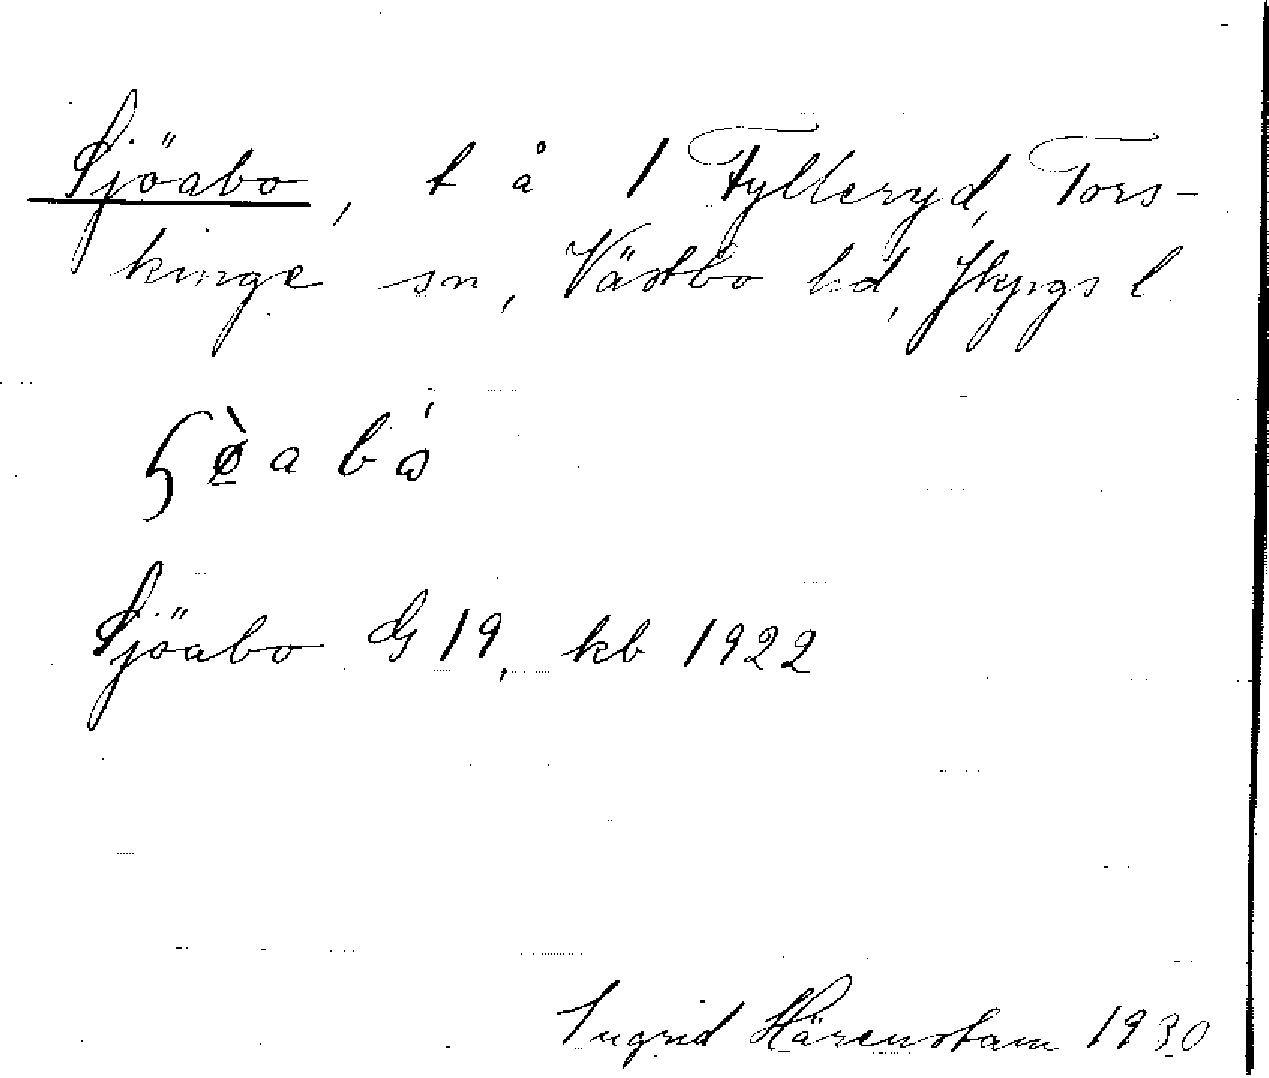 Sjöabo, t å 1 Fylleryd, Tors-
kinge sn, Västbo hd, Jkpgs l
Sjöabo G 19, kb 1922
Ingrid Härenstam 1930